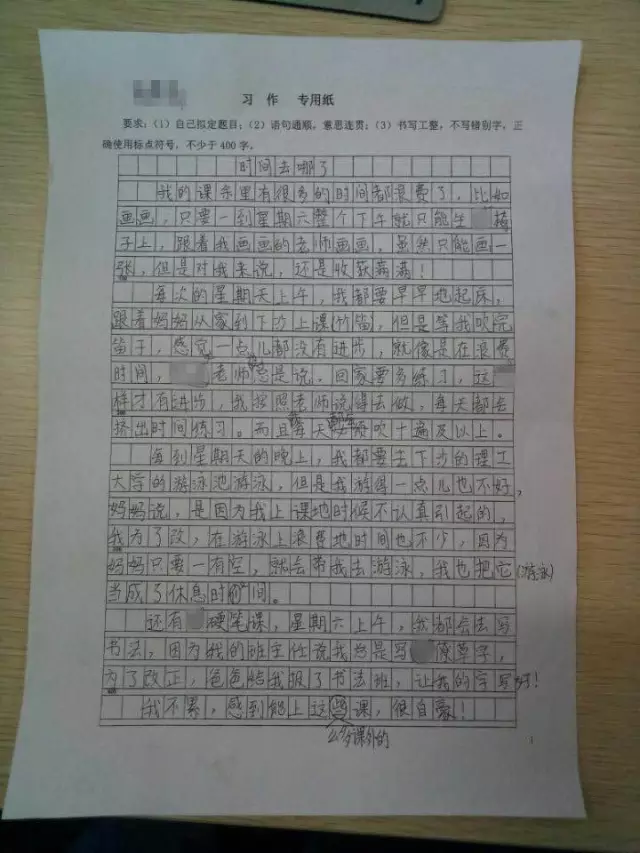 习 作 专用纸
要求：（1）自己拟定题目；（2）语句通顺，意思连贯；（3）书写工整，不写错别字，正
确使用标点符号，不少于400字。
时间去哪了
我的课余里有很多的时间都浪费了，比如
画画，只要一到星期六整个下午就只能坐椅
子上，跟着我画画的老师画画，虽然只能画一
张，但是对我来说，还是收获满满！
每次的星期天上午，我都要早早地起床，
跟着妈妈从家到下沙上课(竹笛，但是等我吹完
笛子，感觉一点儿都没有进步，就像是在浪费
时间，老师总是说，回家要多练习，这
样才有进步，我按照老师说得去做，每天都会
挤出时间练习。而且每天都要吹十遍及以上。
每到星期天的晚上，我都要去下沙的理工
大学的游泳池游泳，但是我游得一点儿也不好，
妈妈说，是因为我上课地时候不认真引起的，
我为了改，在游泳上浪费地时间也不少，因为
妈妈只要一有空，就会带我去游泳，我也把它(游泳)
当成了休息时间。
还有硬笔课，星期六上午，我都会去写
书法，因为我的班主任说我总是写潦草字，
为了改正，爸爸给我报了书法班，让我的字写好！
我不累，感到能上这些课，很自豪！
课外的